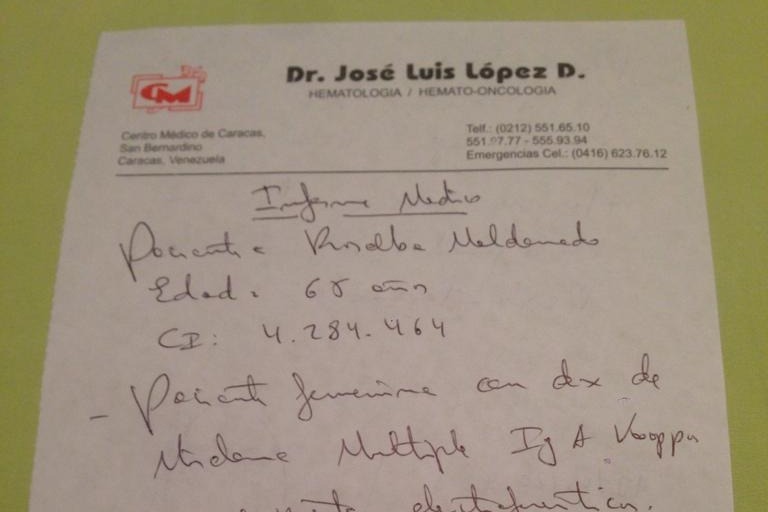 CM
Dr. José Luis López D.
HEMATOLOGIA / HEMATO-ONCOLOGIA
Centro Médico de Caracas,
San Bernardino
Caracas, Venezuela
Telf.: (0212) 551.65.10
551.97.77 - 555.93.94
Emergencias Cel.: (0416) 623.76.12
Informe Medico
Paciente: Rosalba Maldonado
Edad: años
CI: 4.284.464
- Paciente femenina con dx de
Mieloma Multiple Ig A Kappa